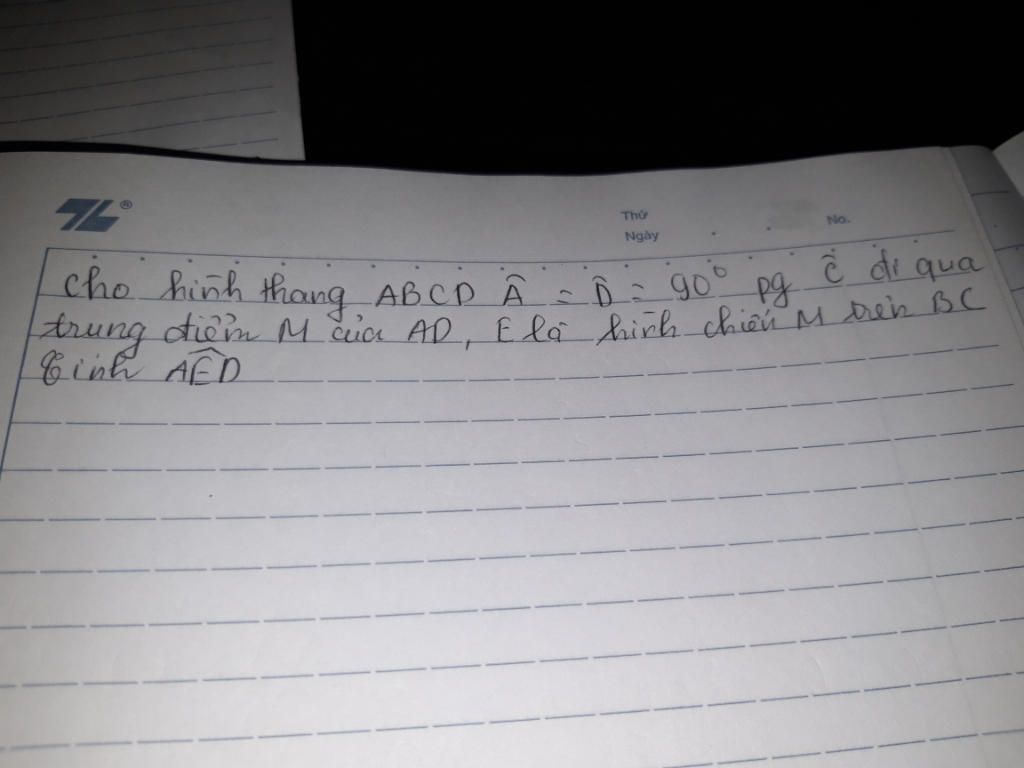 Thứ
Ngày
No.
Cho hình thang ABCD Â = D̂ = 90⁰ pg Ĉ đi qua
trung điểm M của AD, E là hình chiếu M trên BC
Tính AÊD